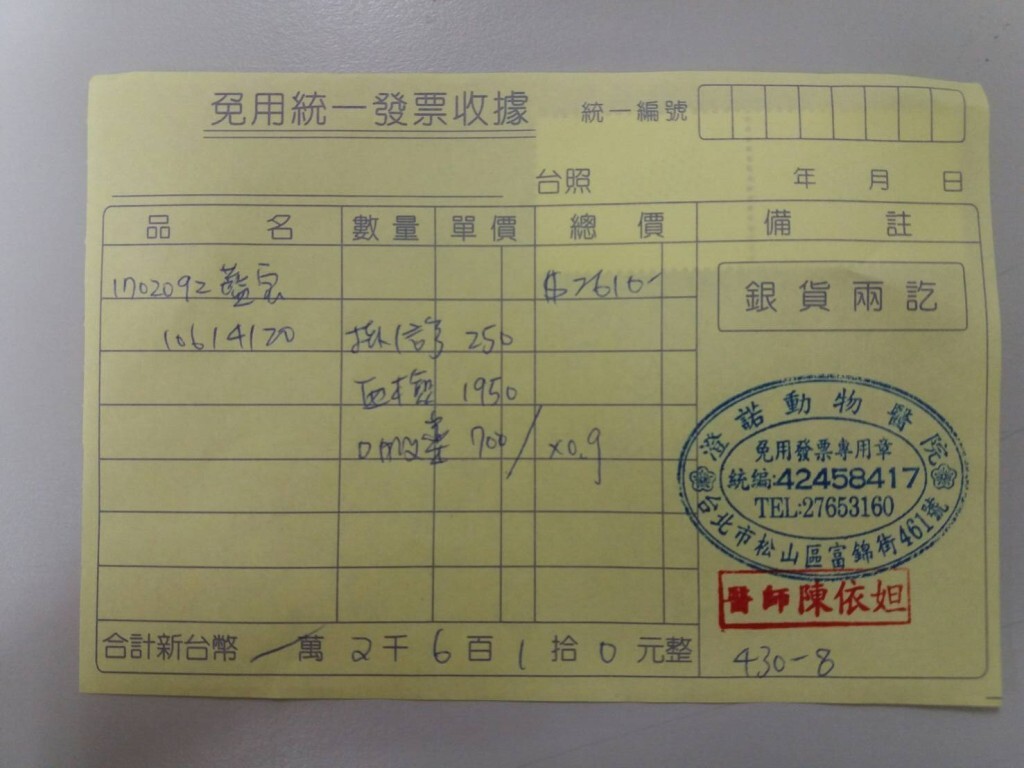 免用統一發票收據
統一編號
台照 年 月 日
品名 數量 單價 總價 備註
1702092 藍宝 $2610-
銀貨兩訖
10614120 掛號 250
血檢 1950
700 / ×0.9
澄諾動物醫院
免用發票專用章
統編:42458417
TEL:27653160
台北市松山區富錦街461號
醫師陳依妲
合計新台幣 萬 2 千 6 百 1 拾 0 元整
430-8